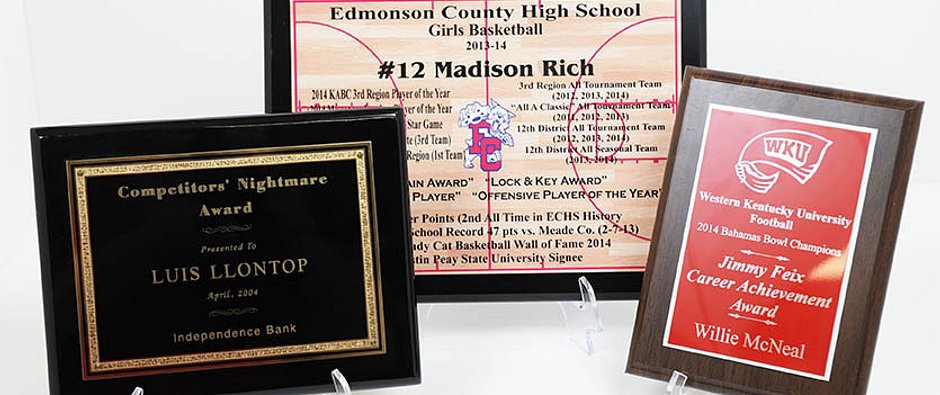 Edmonson County High School
Girls Basketball
2013-14
#12 Madison Rich
2014 KABC 3rd Region Player of the Year
of the Year
Star Game
(3rd Team)
Region (1st Team)
3rd Region All Tournament Team
(2012, 2013, 2014)
"All A Classic" All Tournament Team
(2011, 2012, 2013)
12th District All Tournament Team
(2012, 2013, 2014)
12th District All Seasonal Team
(2013, 2014)
EC
AWARD" "LOCK & KEY AWARD"
PLAYER" "OFFENSIVE PLAYER OF THE YEAR"
Points (2nd All Time in ECHS History
School Record 47 pts vs. Meade Co. (2-7-13)
Cat Basketball Wall of Fame 2014
Peay State University Signee
Competitors' Nightmare
Award
Presented To
LUIS LLONTOP
April, 2004
Independence Bank
WKU
Western Kentucky University
Football
2014 Bahamas Bowl Champions
Jimmy Feix
Career Achievement
Award
Willie McNeal